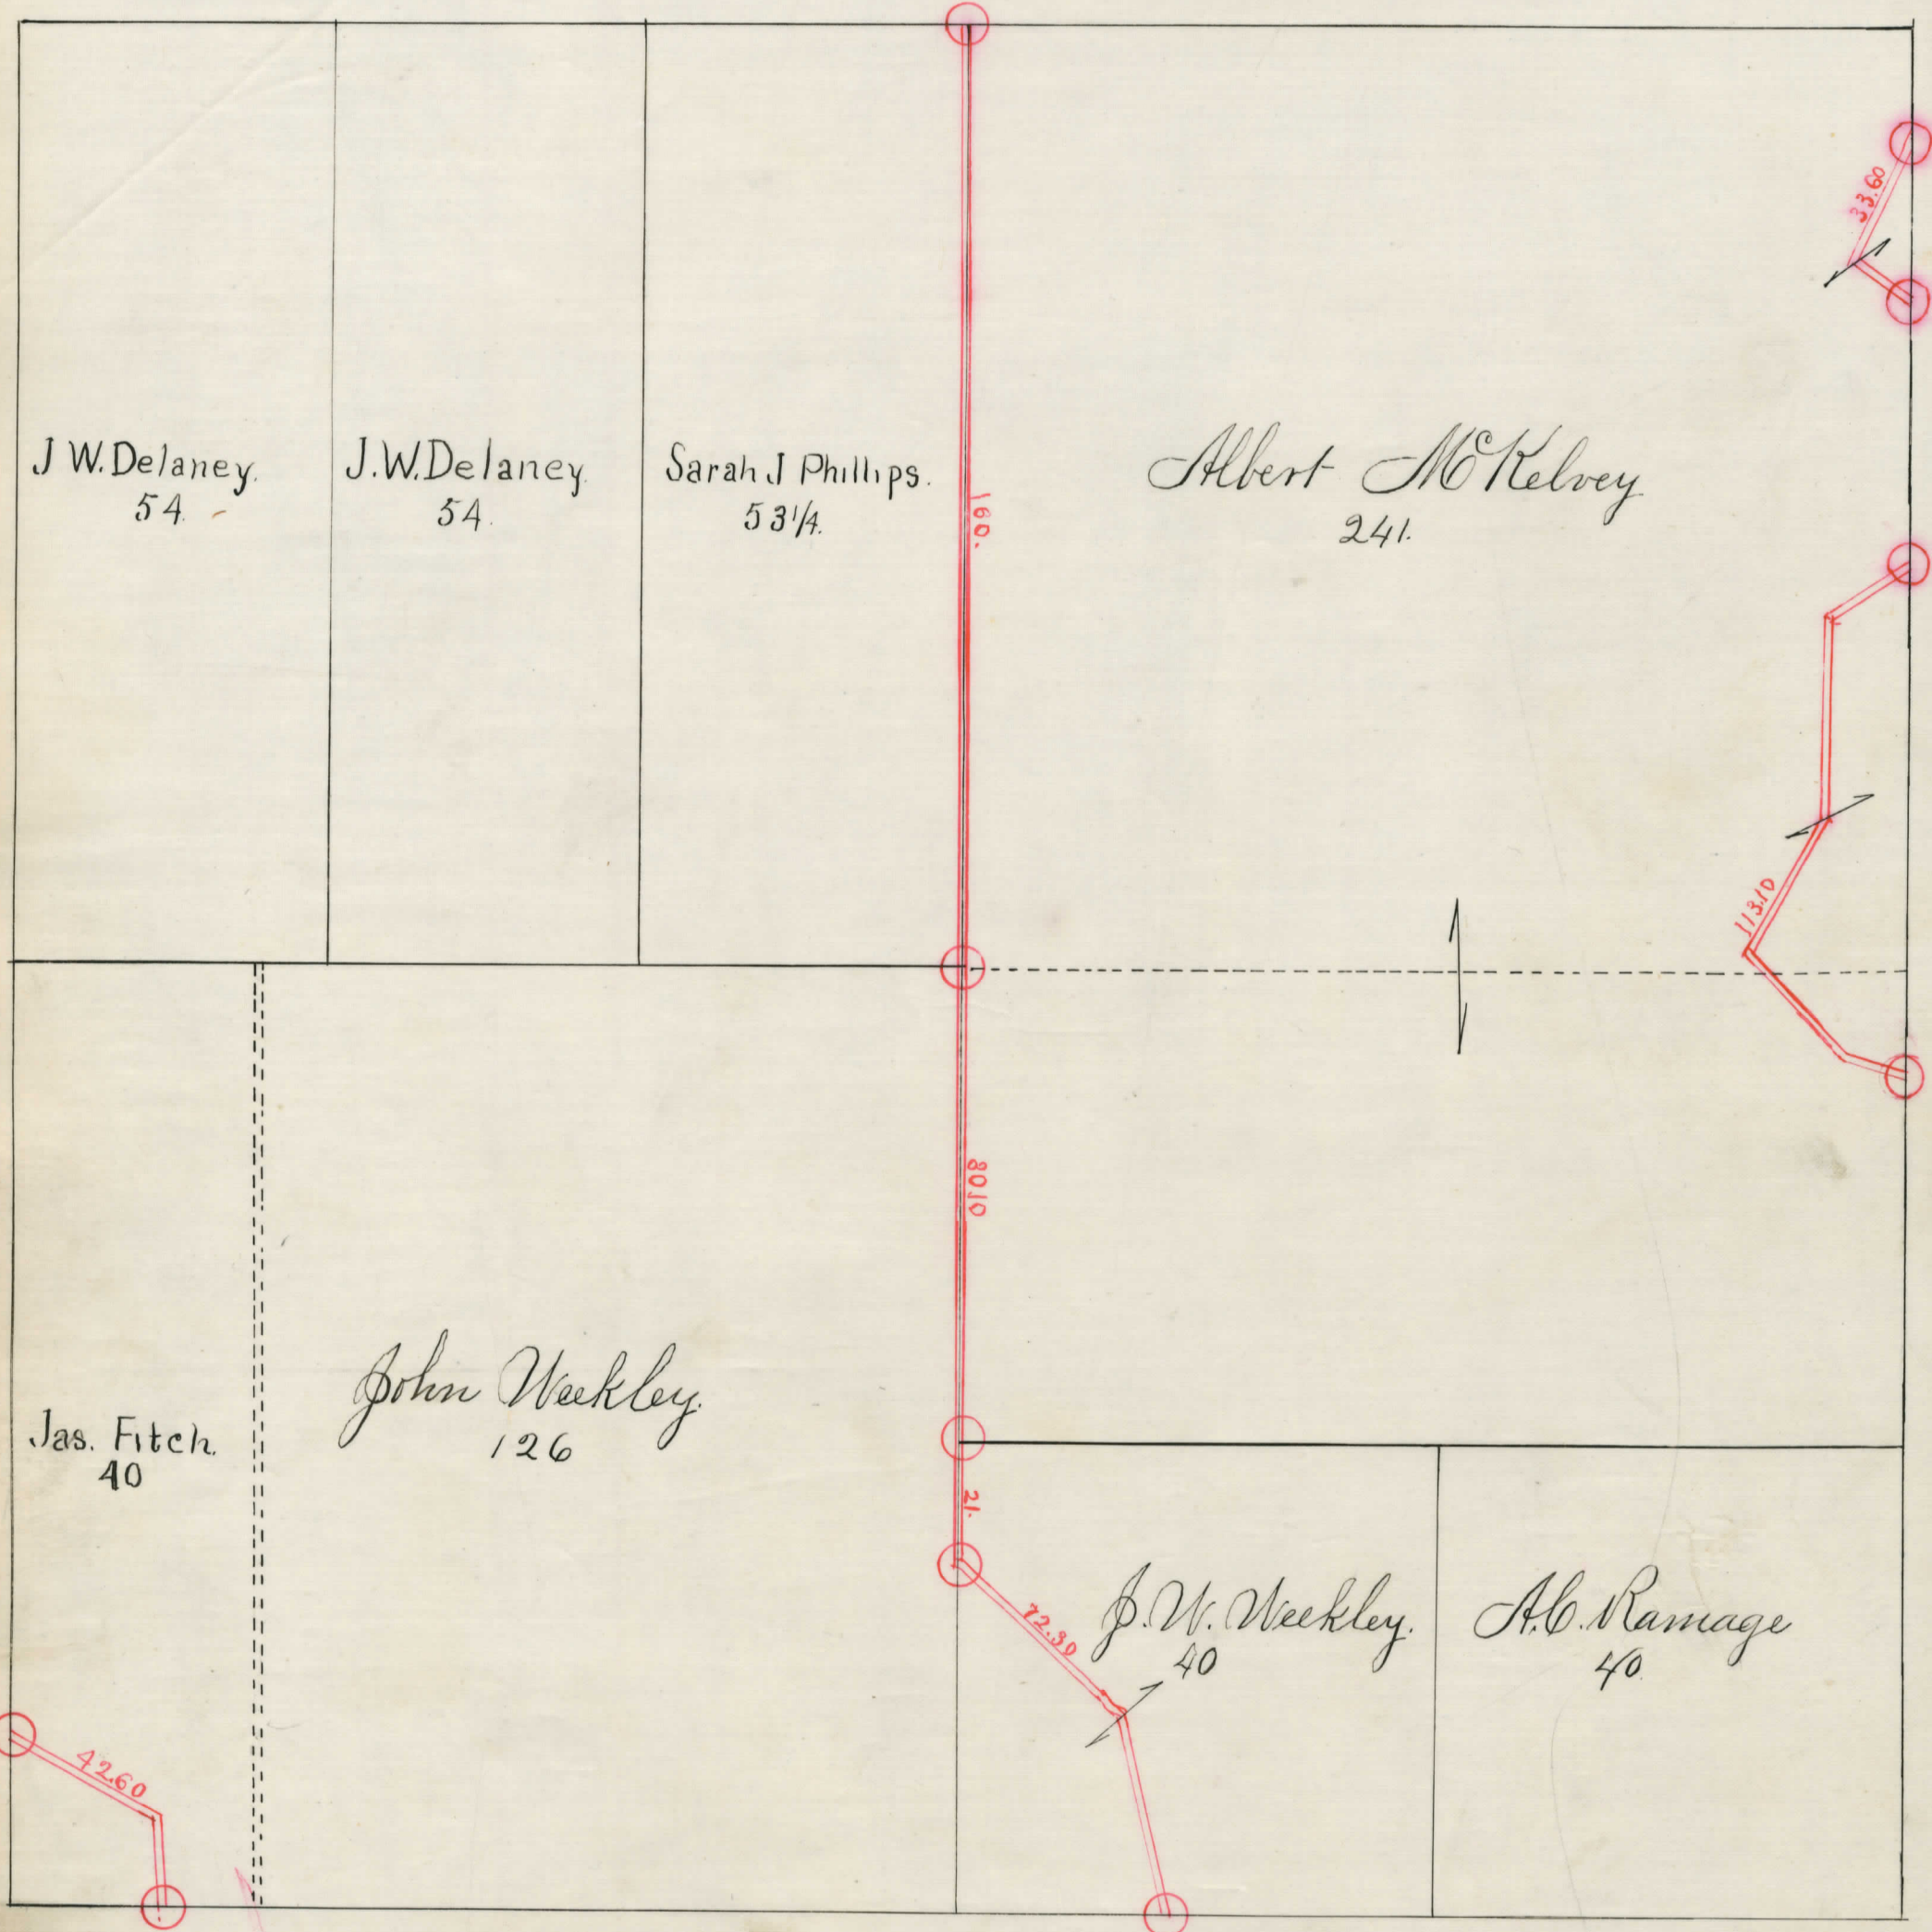 J W. Delaney.
54.
J.W. Delaney.
54.
Sarah J Phillips.
53 1/4.
Albert McKelvey
241.
33.60
160.
113.10
80.10
Jas. Fitch.
40
John Weekley.
126
21.
72.30
J. W. Weekley.
40
A.C. Ramage
40.
42.60